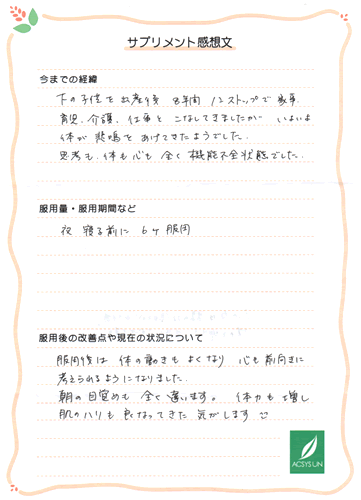 サプリメント感想文
今までの経緯
下の子供を出産後 8年間 ノンストップで 家事
育児、介護、仕事と こなしてきましたが いよいよ
体が 悲鳴を あげてきたようでした。
思考も、体も心も 全く 機能不全状態でした。
服用量・服用期間など
夜 寝る前に 6ケ 服用
服用後の改善点や現在の状況について
服用後は 体の動きも よくなり 心も 前向きに
考えられるように なりました。
朝の目覚めも 全く 違います。 体力も 増し
肌のハリも 良くなってきた 気がします☺
ACSYSUN